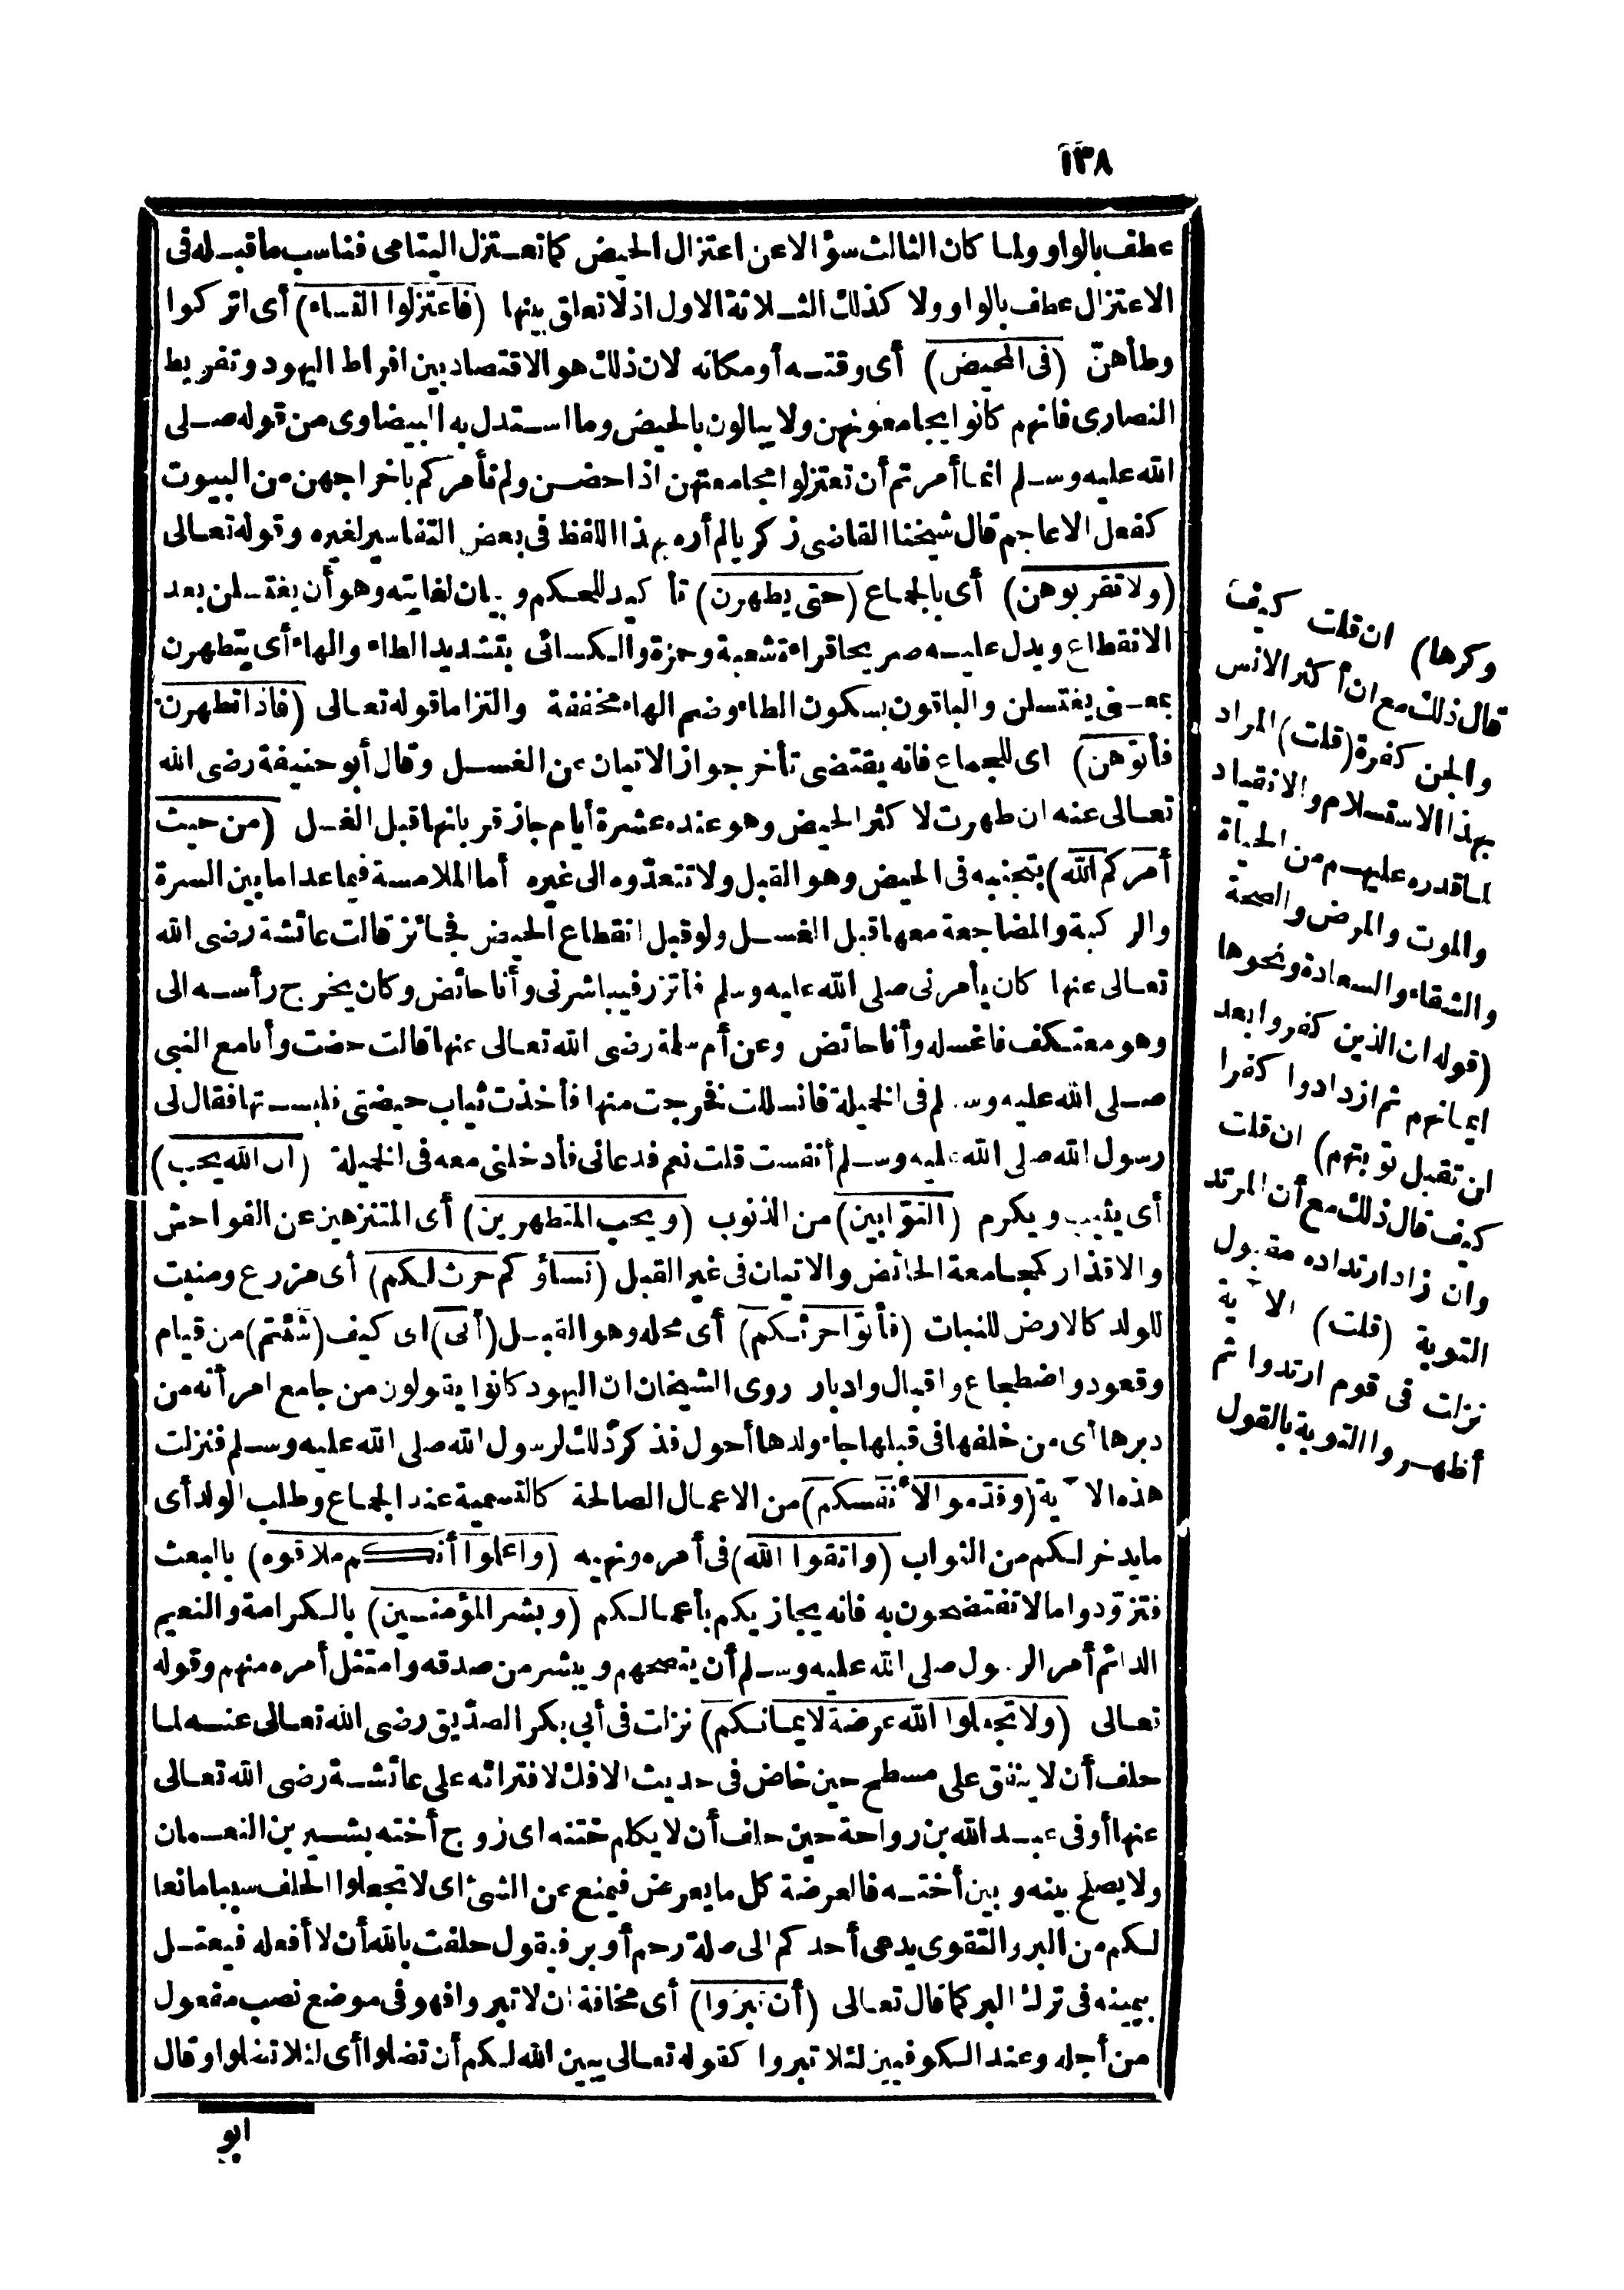 ١٣٨
عطف بالواو ولما كان الثالث سؤالا عن اعتزال الحيض كما تعتزل اليتامى فناسب ما قبله فى
الاعتزال عطف بالواو ولا كذلك الثلاثة الاول اذ لا تعلق بينها (فاعتزلوا النساء) أى اتركوا
وطأهنّ (فى المحيض) أى وقته أو مكانه لان ذلك هو الاقتصاد بين افراط اليهود وتفريط
النصارى فانهم كانوا يجامعونهن ولا يبالون بالحيض وما استدل به البيضاوى من قوله صلى
الله عليه وسلم انما أمرتم أن تعتزلوا مجامعتهن اذا حضن ولم نأمركم باخراجهن من البيوت
كفعل الاعاجم قال شيخنا القاضى زكريا لم أره بهذا اللفظ فى بعض التفاسير لغيره وقوله تعالى
(ولا تقربوهن) أى بالجماع (حتى يطهرن) تأكيد للحكم وبيان لغايته وهو أن يغتسلن بعد
الانقطاع ويدل عليه صريحا قراءة شعبة وحمزة والكسائى بتشديد الطاء والهاء أى يتطهرن
بمعنى يغتسلن والباقون بسكون الطاء وضم الهاء مخففة والتزاما قوله تعالى (فاذا تطهرن
فأتوهن) اى للجماع فانه يقتضى تأخر جواز الاتيان عن الغسل وقال أبو حنيفة رضى الله
تعالى عنه ان طهرت لا كثر الحيض وهو عنده عشرة أيام جاز قربانها قبل الغسل (من حيث
أمركم الله) بتجنبه فى الحيض وهو القبل ولا تتعدّوه الى غيره أما الملامسة فيما عدا ما بين السرة
والركبة والمضاجعة معها قبل الغسل ولو قبل انقطاع الحيض فجائز قالت عائشة رضى الله
تعالى عنها كان يأمرنى صلى الله عليه وسلم فأتزر فيباشرنى وأنا حائض وكان يخرج رأسه الى
وهو معتكف فاغسله وأنا حائض وعن أم سلمة رضى الله تعالى عنها قالت حضت وأنا مع النبى
صلى الله عليه وسلم فى الخميلة فانسللت فخرجت منها فأخذت ثياب حيضتى فلبستها فقال لى
رسول الله صلى الله عليه وسلم أنفست قلت نعم فدعانى فأدخلنى معه فى الخميلة (ان الله يحب)
أى يثيب ويكرم (التوّابين) من الذنوب (ويحب المتطهرين) أى المتنزهين عن الفواحش
والاقذار كمجامعة الحائض والاتيان فى غير القبل (نساؤكم حرث لكم) أى مزرع ومنبت
للولد كالارض للنبات (فأتوا حرثكم) أى محله وهو القبل (أنى) اى كيف (شئتم) من قيام
وقعود واضطجاع واقبال وادبار روى الشيخان ان اليهود كانوا يقولون من جامع امرأته من
دبرها أى من خلفها فى قبلها جاء ولدها أحول فذكر ذلك لرسول الله صلى الله عليه وسلم فنزلت
هذه الآية (وقدّموا لأنفسكم) من الاعمال الصالحة كالتسمية عند الجماع وطلب الولد أى
ما يدخر لكم من الثواب (واتقوا الله) فى أمره ونهيه (واعلموا أنكم ملاقوه) بالبعث
فتزوّدوا ما لا تفتضحون به فانه يجازيكم بأعمالكم (وبشر المؤمنين) بالكرامة والنعيم
الدائم أمر الرسول صلى الله عليه وسلم أن ينصحهم ويبشر من صدقه وامتثل أمره منهم وقوله
تعالى (ولا تجعلوا الله عرضة لايمانكم) نزلت فى أبى بكر الصدّيق رضى الله تعالى عنه لما
حلف أن لا ينفق على مسطح حين خاض فى حديث الافك لافترائه على عائشة رضى الله تعالى
عنها أو فى عبد الله بن رواحة حين حلف أن لا يكلم ختنه اى زوج أخته بشير بن النعمان
ولا يصلح بينه وبين أخته فالعرضة كل ما يعرض فيمنع عن الشئ اى لا تجعلوا الحلف سببا مانعا
لكم من البر والتقوى يدعى أحدكم الى صلة رحم أو بر فيقول حلفت بالله أن لا أفعله فيعتل
بيمينه فى ترك البر كما قال تعالى (أن تبرّوا) أى مخافة ان لا تبروا فهو فى موضع نصب مفعول
من أجله وعند الكوفيين لئلا تبروا كقوله تعالى يبين الله لكم أن تضلوا أى لئلا تضلوا وقال
ابو
وكرها) ان قلت كيف
قال ذلك مع ان أكثر الانس
والجن كفرة (قلت) المراد
بهذا الاستسلام والانقياد
لما قدره عليهم من الحياة
والموت والمرض والصحة
والشقاء والسعادة ونحوها
(قوله ان الذين كفروا بعد
ايمانهم ثم ازدادوا كفرا
لن تقبل توبتهم) ان قلت
كيف قال ذلك مع أن المرتد
وان زاد ارتداده مقبول
التوبة (قلت) الآية
نزلت فى قوم ارتدوا ثم
أظهروا التوبة بالقول